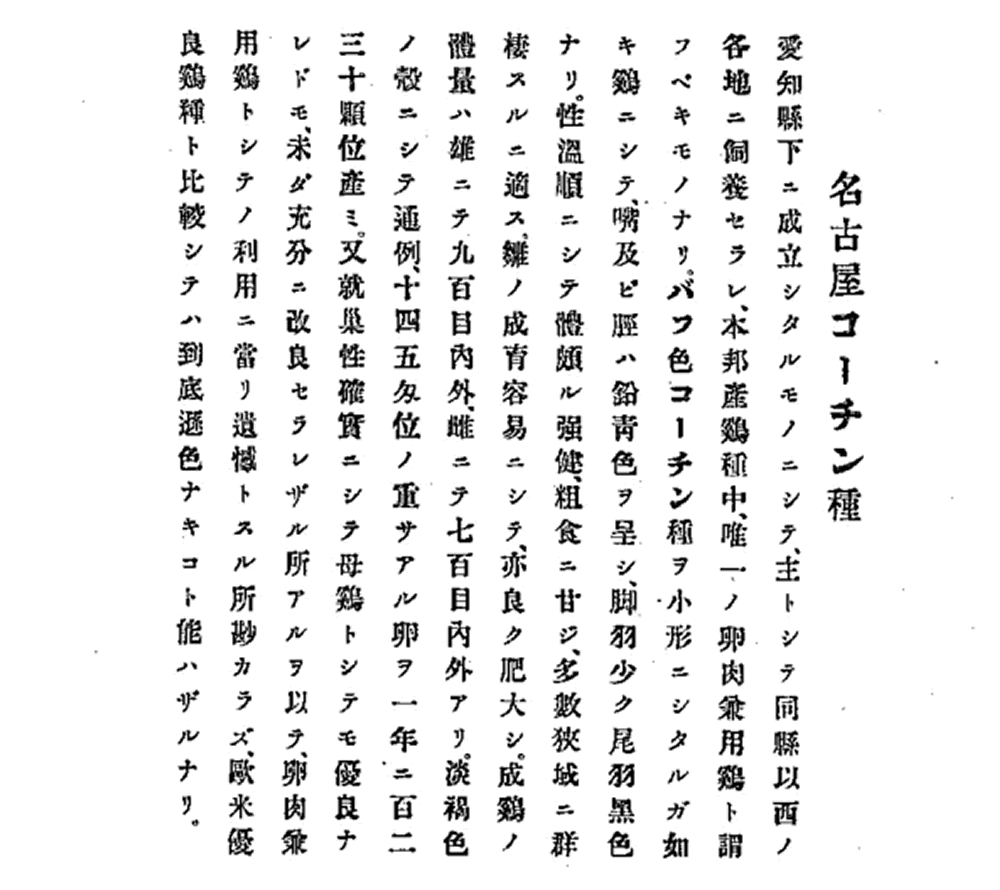 名古屋コーチン種
愛知縣下ニ成立シタルモノニシテ、主トシテ同縣以西ノ
各地ニ飼養セラレ、本邦產鷄種中、唯一ノ卵肉兼用鷄ト謂
フベキモノナリ。バフ色コーチン種ヲ小形ニシタルガ如
キ鷄ニシテ、嘴及ビ脛ハ鉛靑色ヲ呈シ、脚羽少ク尾羽黑色
ナリ。性溫順ニシテ體頗ル强健、粗食ニ甘ジ、多數狹域ニ群
棲スルニ適ス、雛ノ成育容易ニシテ、亦良ク肥大シ。成鷄ノ
體量ハ雄ニテ九百目內外、雌ニテ七百目內外アリ。淡褐色
ノ殼ニシテ通例、十四五匁位ノ重サアル卵ヲ一年ニ百二
三十顆位產ミ。又就巢性確實ニシテ母鷄トシテモ優良ナ
レドモ、未ダ充分ニ改良セラレザル所アルヲ以テ、卵肉兼
用鷄トシテノ利用ニ當リ遺憾トスル所尠カラズ、歐米優
良鷄種ト比較シテハ到底遜色ナキコト能ハザルナリ。